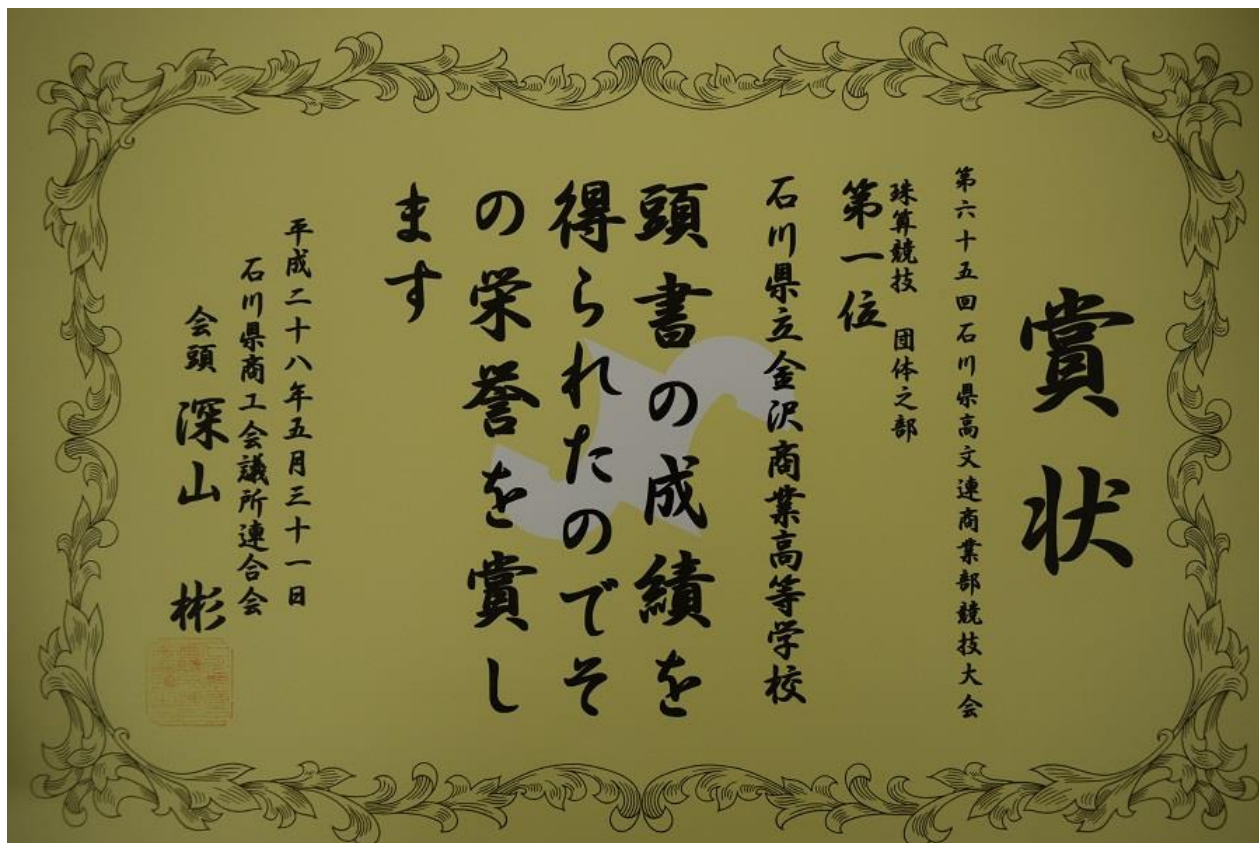 賞状
第六十五回石川県高文連商業部競技大会
珠算競技 団体之部
第一位
石川県立金沢商業高等学校
頭書の成績を
得られたのでそ
の栄誉を賞し
ます
平成二十八年五月三十一日
石川県商工会議所連合会
会頭 深山 彬